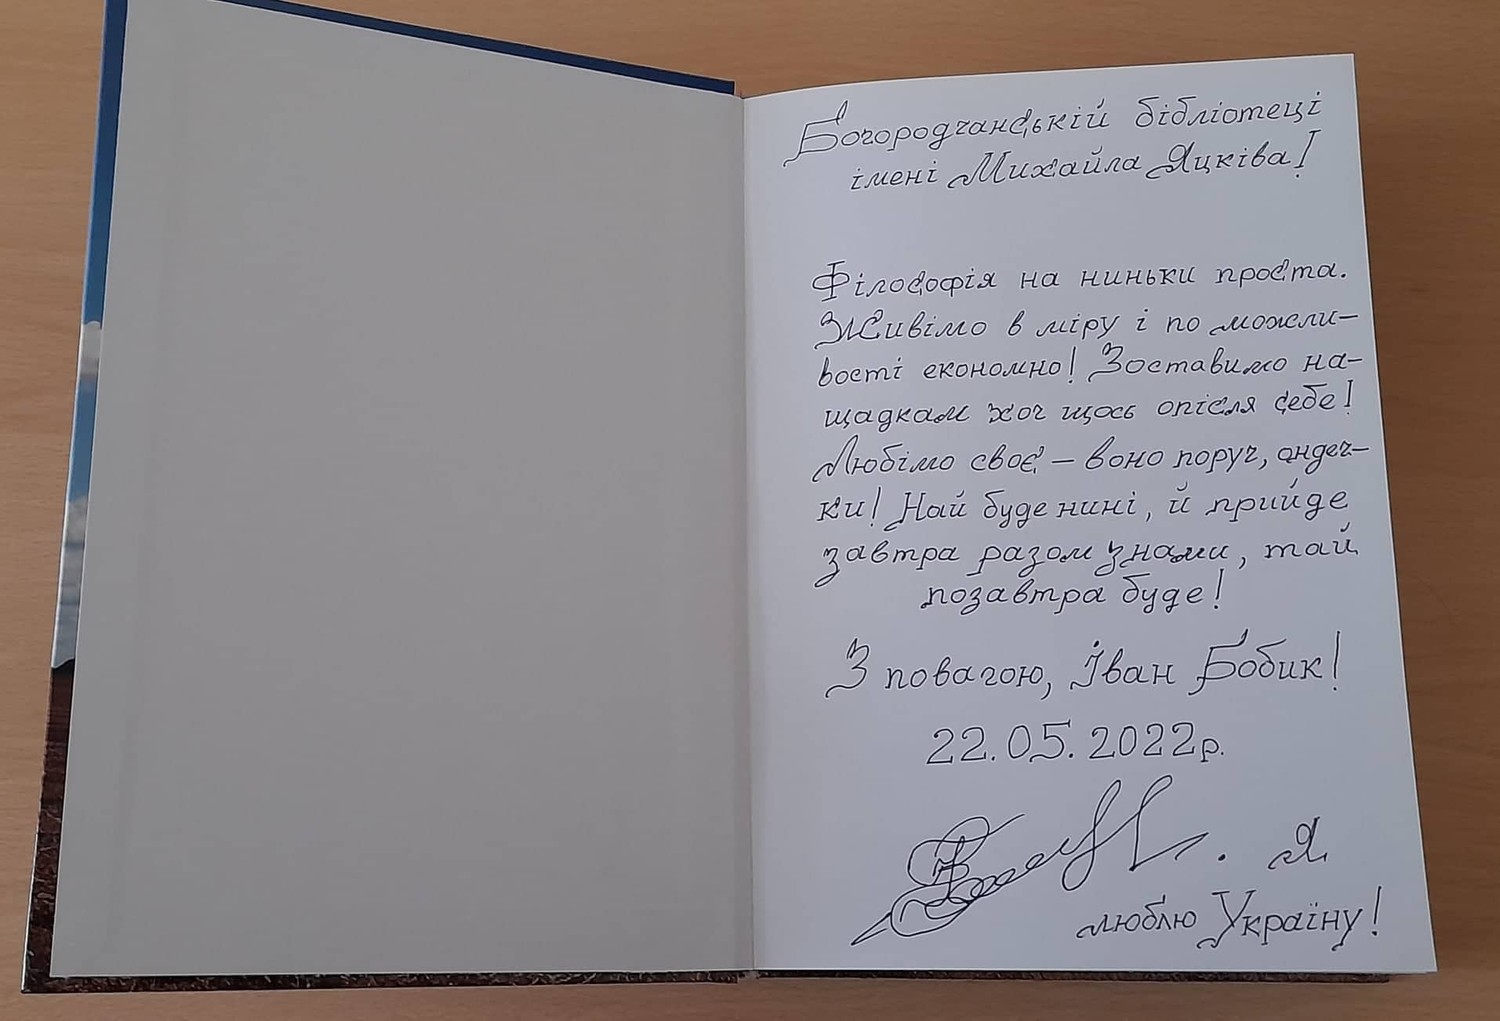 Богородчанській бібліотеці
імені Михайла Яцківа!
Філософія на ниньки проста.
Живімо в міру і по можли-
вості економно! Зоставимо на-
щадкам хоч щось опісля себе!
Любімо своє – воно поруч, андеч-
ки! Най буде нині, й прийде
завтра разом знами, тай
позавтра буде!
З повагою, Іван Бобик!
22.05.2022р.
Я
люблю Україну!